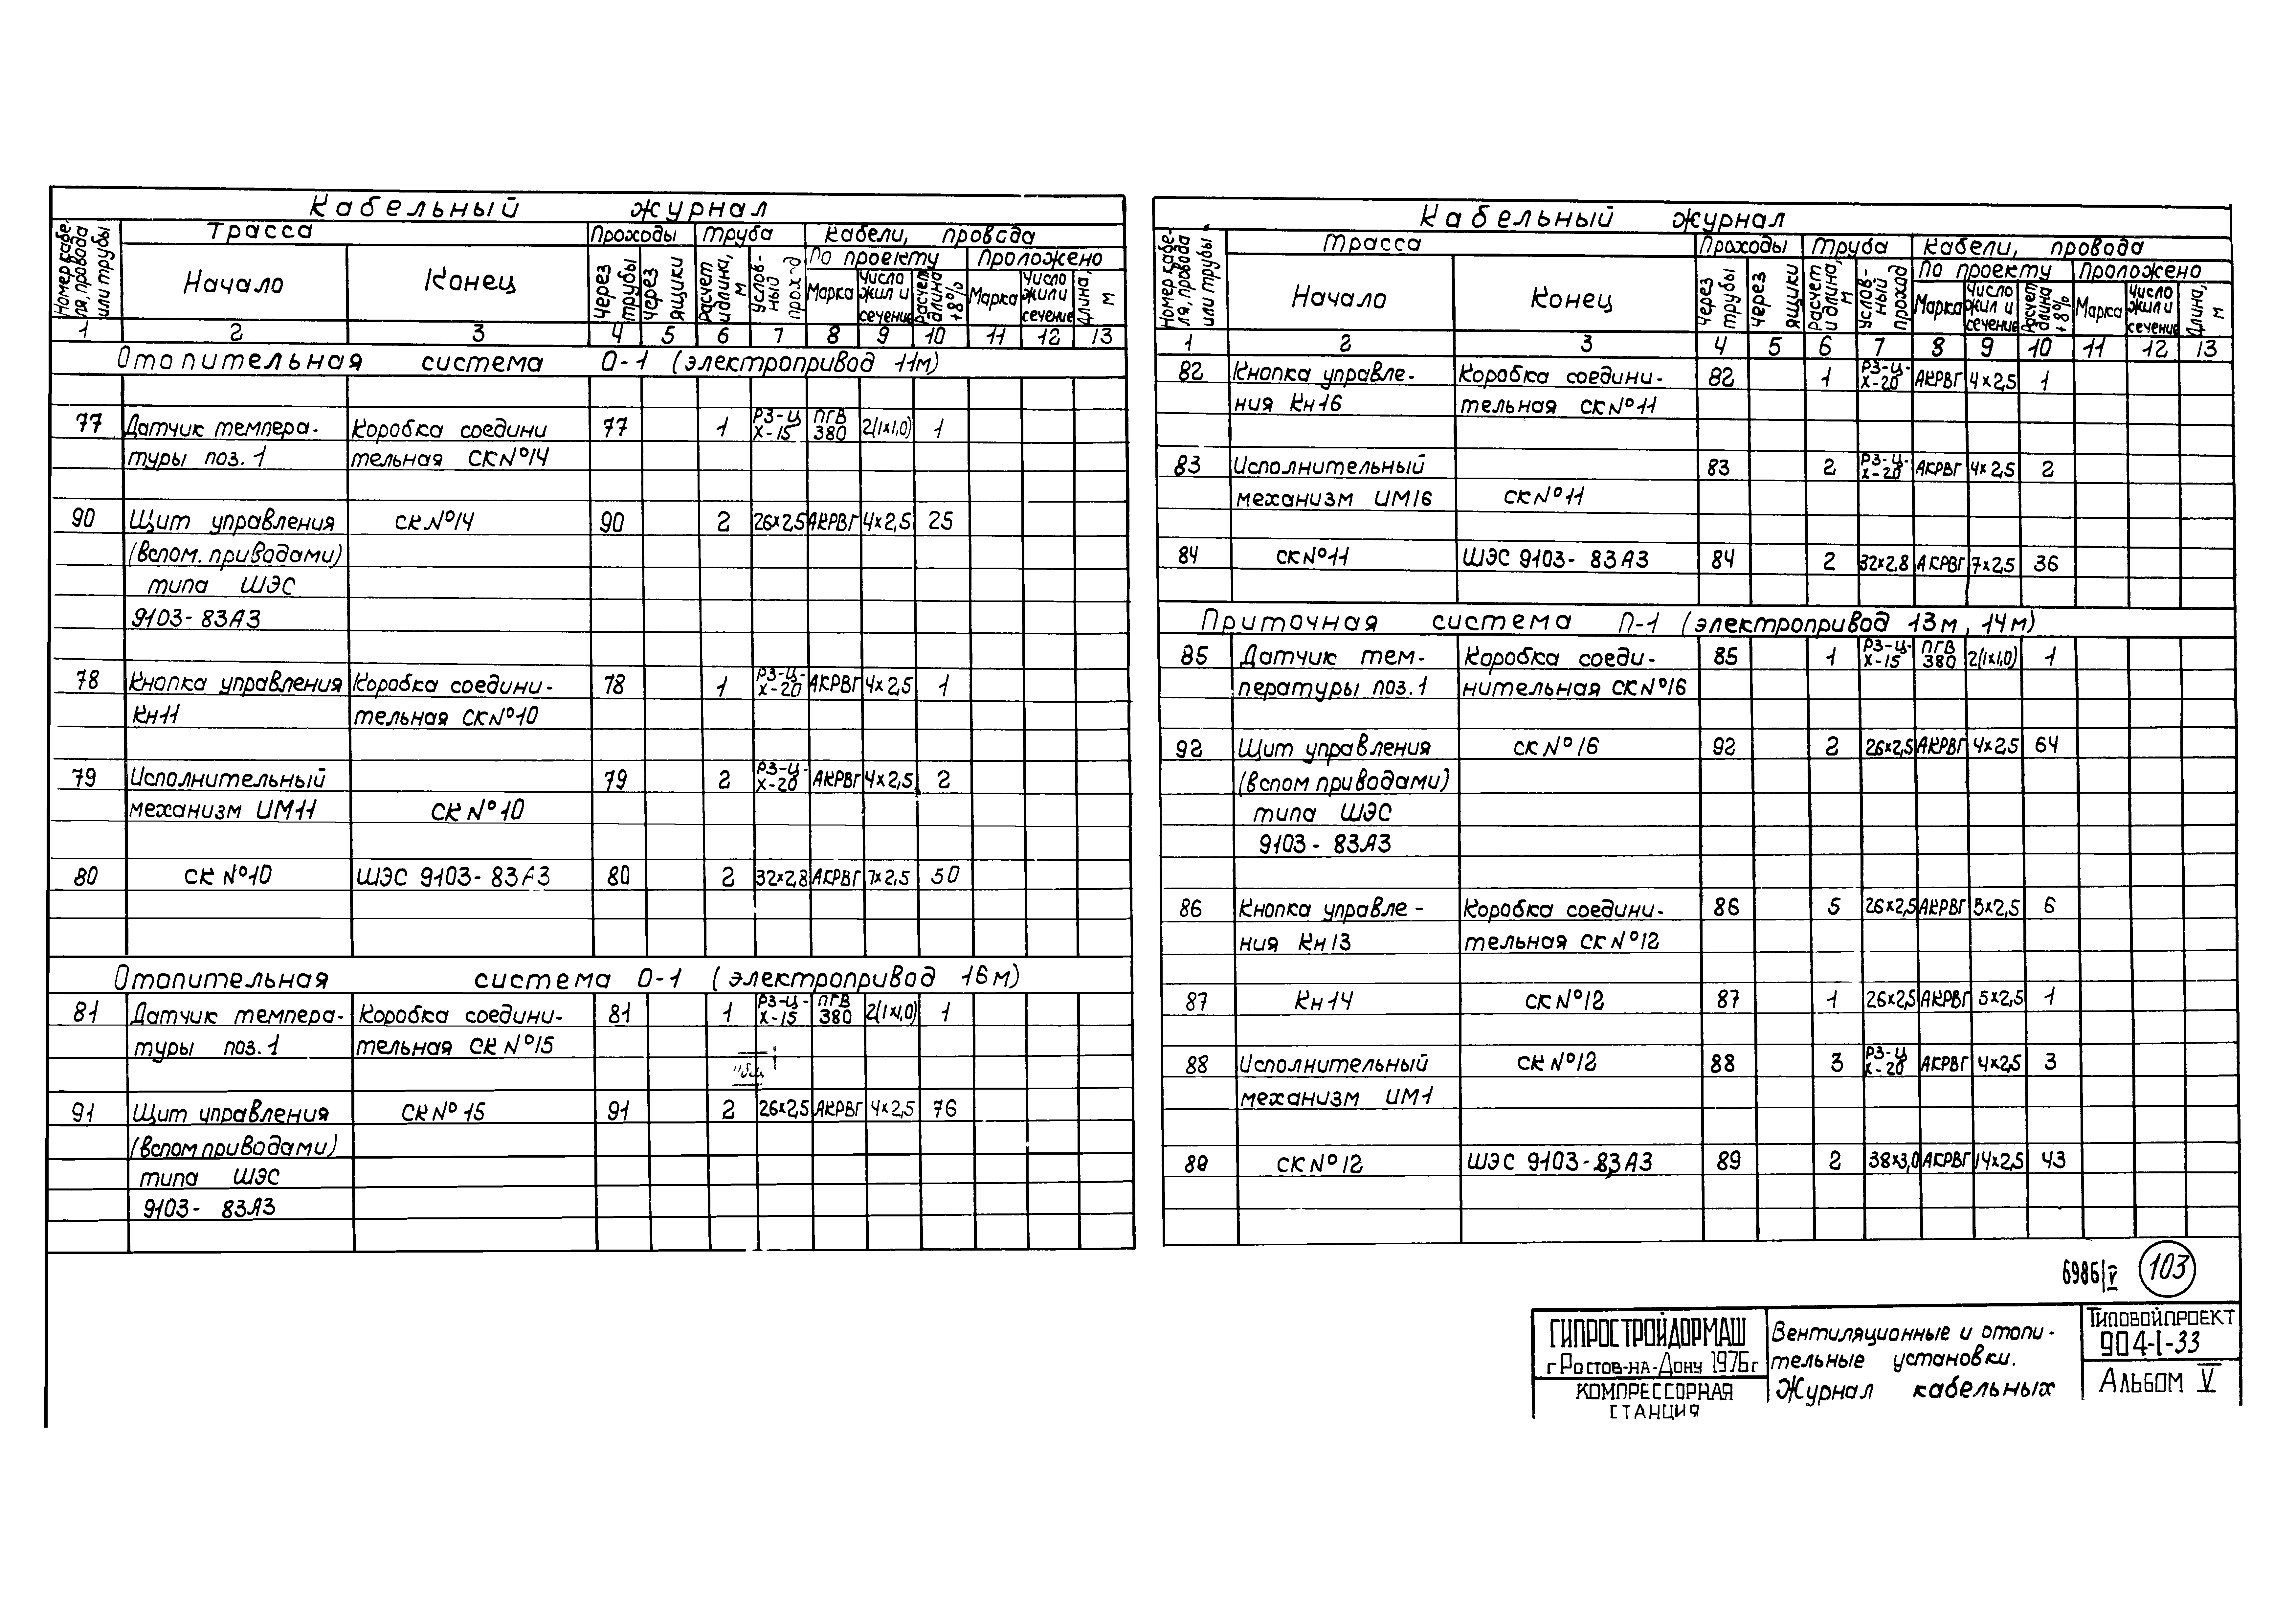 Кабельный журнал
Номер кабеля, провода или трубы
Трасса
Проходы
Труба
Кабели, провода
Начало
Конец
Через трубы
Через ящики
Расчет и длина, м
Услов-ный проход
По проекту
Проложено
Марка
Число жил и сечение
Расчет длина +8%
Марка
Число жил и сечение
Длина, м
1 2 3 4 5 6 7 8 9 10 11 12 13
Отопительная система О-1 (электропривод 11м)
77 Датчик темпера- Коробка соедини 77 1 РЗ-Ц-Х-15 ПГВ 380 2(1х1,0) 1
туры поз. 1 тельная СК№14
90 Щит управления СК№14 90 2 26х2,5 АКРВГ 4х2,5 25
(вспом. приводами)
типа ШЭС
9103-83А3
78 Кнопка управления Коробка соедини- 78 1 РЗ-Ц-Х-20 АКРВГ 4х2,5 1
Кн11 тельная СК№10
79 Исполнительный 79 2 РЗ-Ц-Х-20 АКРВГ 4х2,5 2
механизм ИМ11 СК№10
80 СК№10 ШЭС 9103-83А3 80 2 32х2,8 АКРВГ 7х2,5 50
Отопительная система О-1 (электропривод 16м)
81 Датчик темпера- Коробка соедини- 81 1 РЗ-Ц-Х-15 ПГВ 380 2(1х1,0) 1
туры поз. 1 тельная СК№15
91 Щит управления СК№15 91 2 26х2,5 АКРВГ 4х2,5 76
(вспом приводами)
типа ШЭС
9103- 83А3
Кабельный журнал
Номер кабе-ля, провода или трубы
Трасса
Проходы
Труба
Кабели, провода
Начало
Конец
Через трубы
Через ящики
Расчет и длина, м
Услов-ный проход
По проекту
Проложено
Марка
Число жил и сечение
Расчет длина +8%
Марка
Число жил и сечение
Длина, м
1 2 3 4 5 6 7 8 9 10 11 12 13
82 Кнопка управле- Коробка соедини- 82 1 РЗ-Ц-Х-20 АКРВГ 4х2,5 1
ния Кн16 тельная СК№11
83 Исполнительный 83 2 РЗ-Ц-Х-20 АКРВГ 4х2,5 2
механизм ИМ16 СК№11
84 СК№11 ШЭС 9103-83А3 84 2 32х2,8 АКРВГ 7х2,5 36
Приточная система П-1 (электропривод 13м, 14м)
85 Датчик тем- Коробка соеди- 85 1 РЗ-Ц-Х-15 ПГВ 380 2(1х1,0) 1
пературы поз.1 нительная СК№16
92 Щит управления СК№16 92 2 26х2,5 АКРВГ 4х2,5 64
(вспом приводами)
типа ШЭС
9103- 83А3
86 Кнопка управле- Коробка соедини- 86 5 26х2,5 АКРВГ 5х2,5 6
ния Кн13 тельная СК№12
87 Кн14 СК№12 87 1 26х2,5 АКРВГ 5х2,5 1
88 Исполнительный СК№12 88 3 РЗ-Ц Х-20 АКРВГ 4х2,5 3
механизм ИМ1
89 СК№12 ШЭС 9103-83А3 89 2 38х3,0 АКРВГ 14х2,5 43
6986/V 103
ГИПРОСТРОЙДОРМАШ
г Ростов-на-Дону 1976г
КОМПРЕССОРНАЯ
СТАНЦИЯ
Вентиляционные и отопи-
тельные установки.
Журнал кабельных
Типовой проект
904-1-33
Альбом V